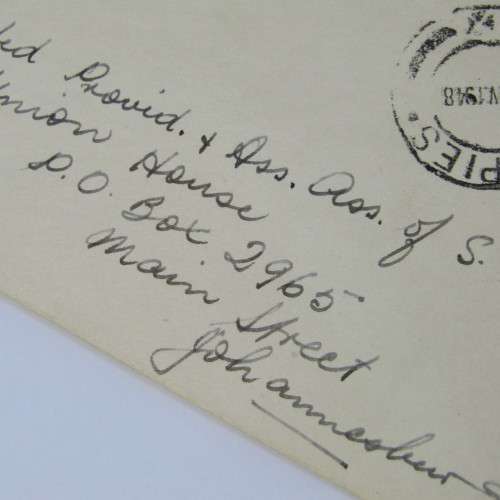 ted Provid. & Ass. Ass. of S.
Union House
P.O. Box 2965
Main Street
Johannesbur
N.1948
PIES.